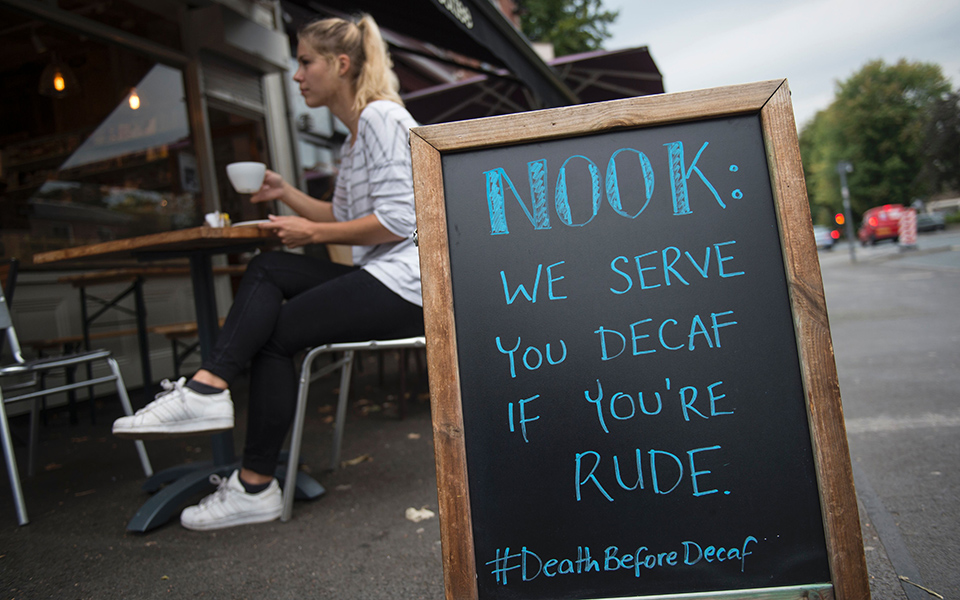 NOOK:
WE SERVE
YOU DECAF
IF YOU'RE
RUDE.
#DeathBeforeDecaf